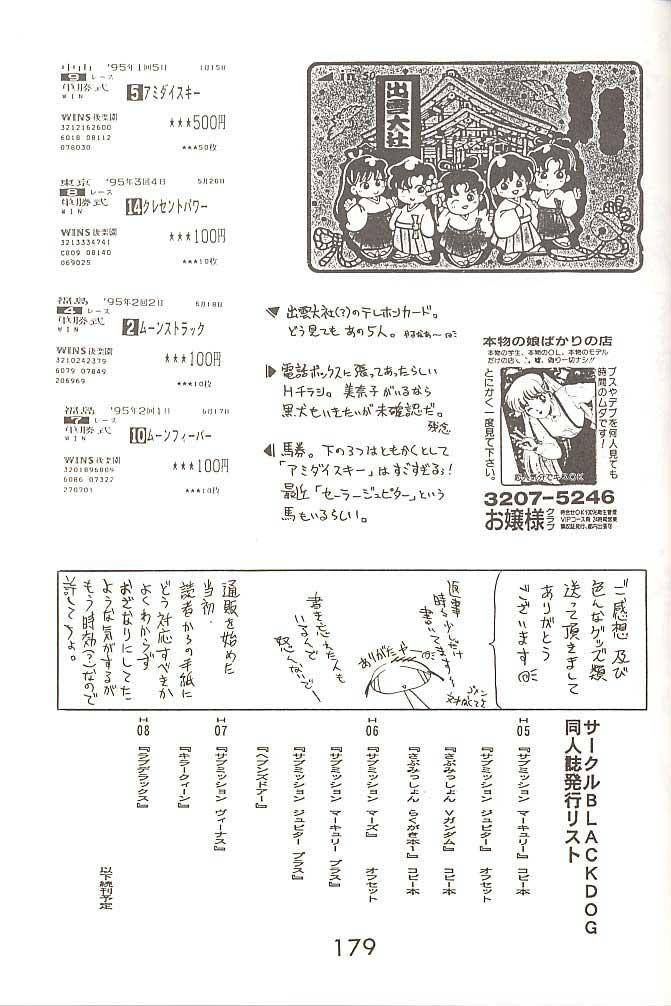 中山 '95年1回5日 1月15日
9 レース
単勝式
WIN
5 アミダイスキー
WINS後楽園
3212162600
6018 08112
078030
★★★500円
★★★50枚
東京 '95年3回4日 5月28日
8 レース
単勝式
WIN
14 クレセントパワー
WINS後楽園
3213334741
C809 08140
069025
★★★100円
★★★10枚
福島 '95年2回2日 6月18日
4 レース
単勝式
WIN
2 ムーンストラック
WINS後楽園
3210242379
6079 07849
206969
★★★100円
★★★10枚
福島 '95年2回1日 6月17日
7 レース
単勝式
WIN
10 ムーンフィーバー
WINS後楽園
3201896809
6086 07322
270701
★★★100円
★★★10枚
50
出雲大社
出雲大社(?)のテレホンカード。
どう見てもあの5人。
電話ボックスに張ってあったらしい
Hチラシ。美奈子がいるなら
黒犬もいきたいが未確認だ。
残念
馬券。下の3つはともかくとして
「アミダイスキー」はすごすぎるぅ!
最近「セーラージュピター」という
馬もいるらしい。
本物の娘ばかりの店
本物の学生、本物のOL、本物のモデル
だけの店く、嘘、偽り一切ナシ!!
ブスやデブを何人見ても
時間のムダです!
とにかく一度見て下さい。
恋人気分でキスOK
3207-5246
お嬢様クラブ
ご感想 及び
色んなグッズ類
送って頂きまして
ありがとう
ございます
返事
時々少しだけ
書いてますが
ありがたや
書き忘れた人も
いるくて
怒んないで
通販を始めた
当初、
読者からの手紙に
どう対応すべきか
よくわからず
おざなりにしてた
ような気がするが
もう時効(?)なので
許してちょ。
サークルBLACKDOG
同人誌発行リスト
H05 『サブミッション マーキュリー』 コピー本
『サブミッション ジュピター』 オフセット
『さぶみっしょん Vガンダム』 コピー本
『さぶみっしょん らくがきホー』 コピー本
H06 『サブミッション マーズ』 オフセット
『サブミッション マーキュリー プラス』
『サブミッション ジュピター プラス』
『ヘブンズドアー』
H07 『サブミッション ヴィーナス』
『キラークィーン』
H08 『ラブデラックス』
以下続刊予定
179